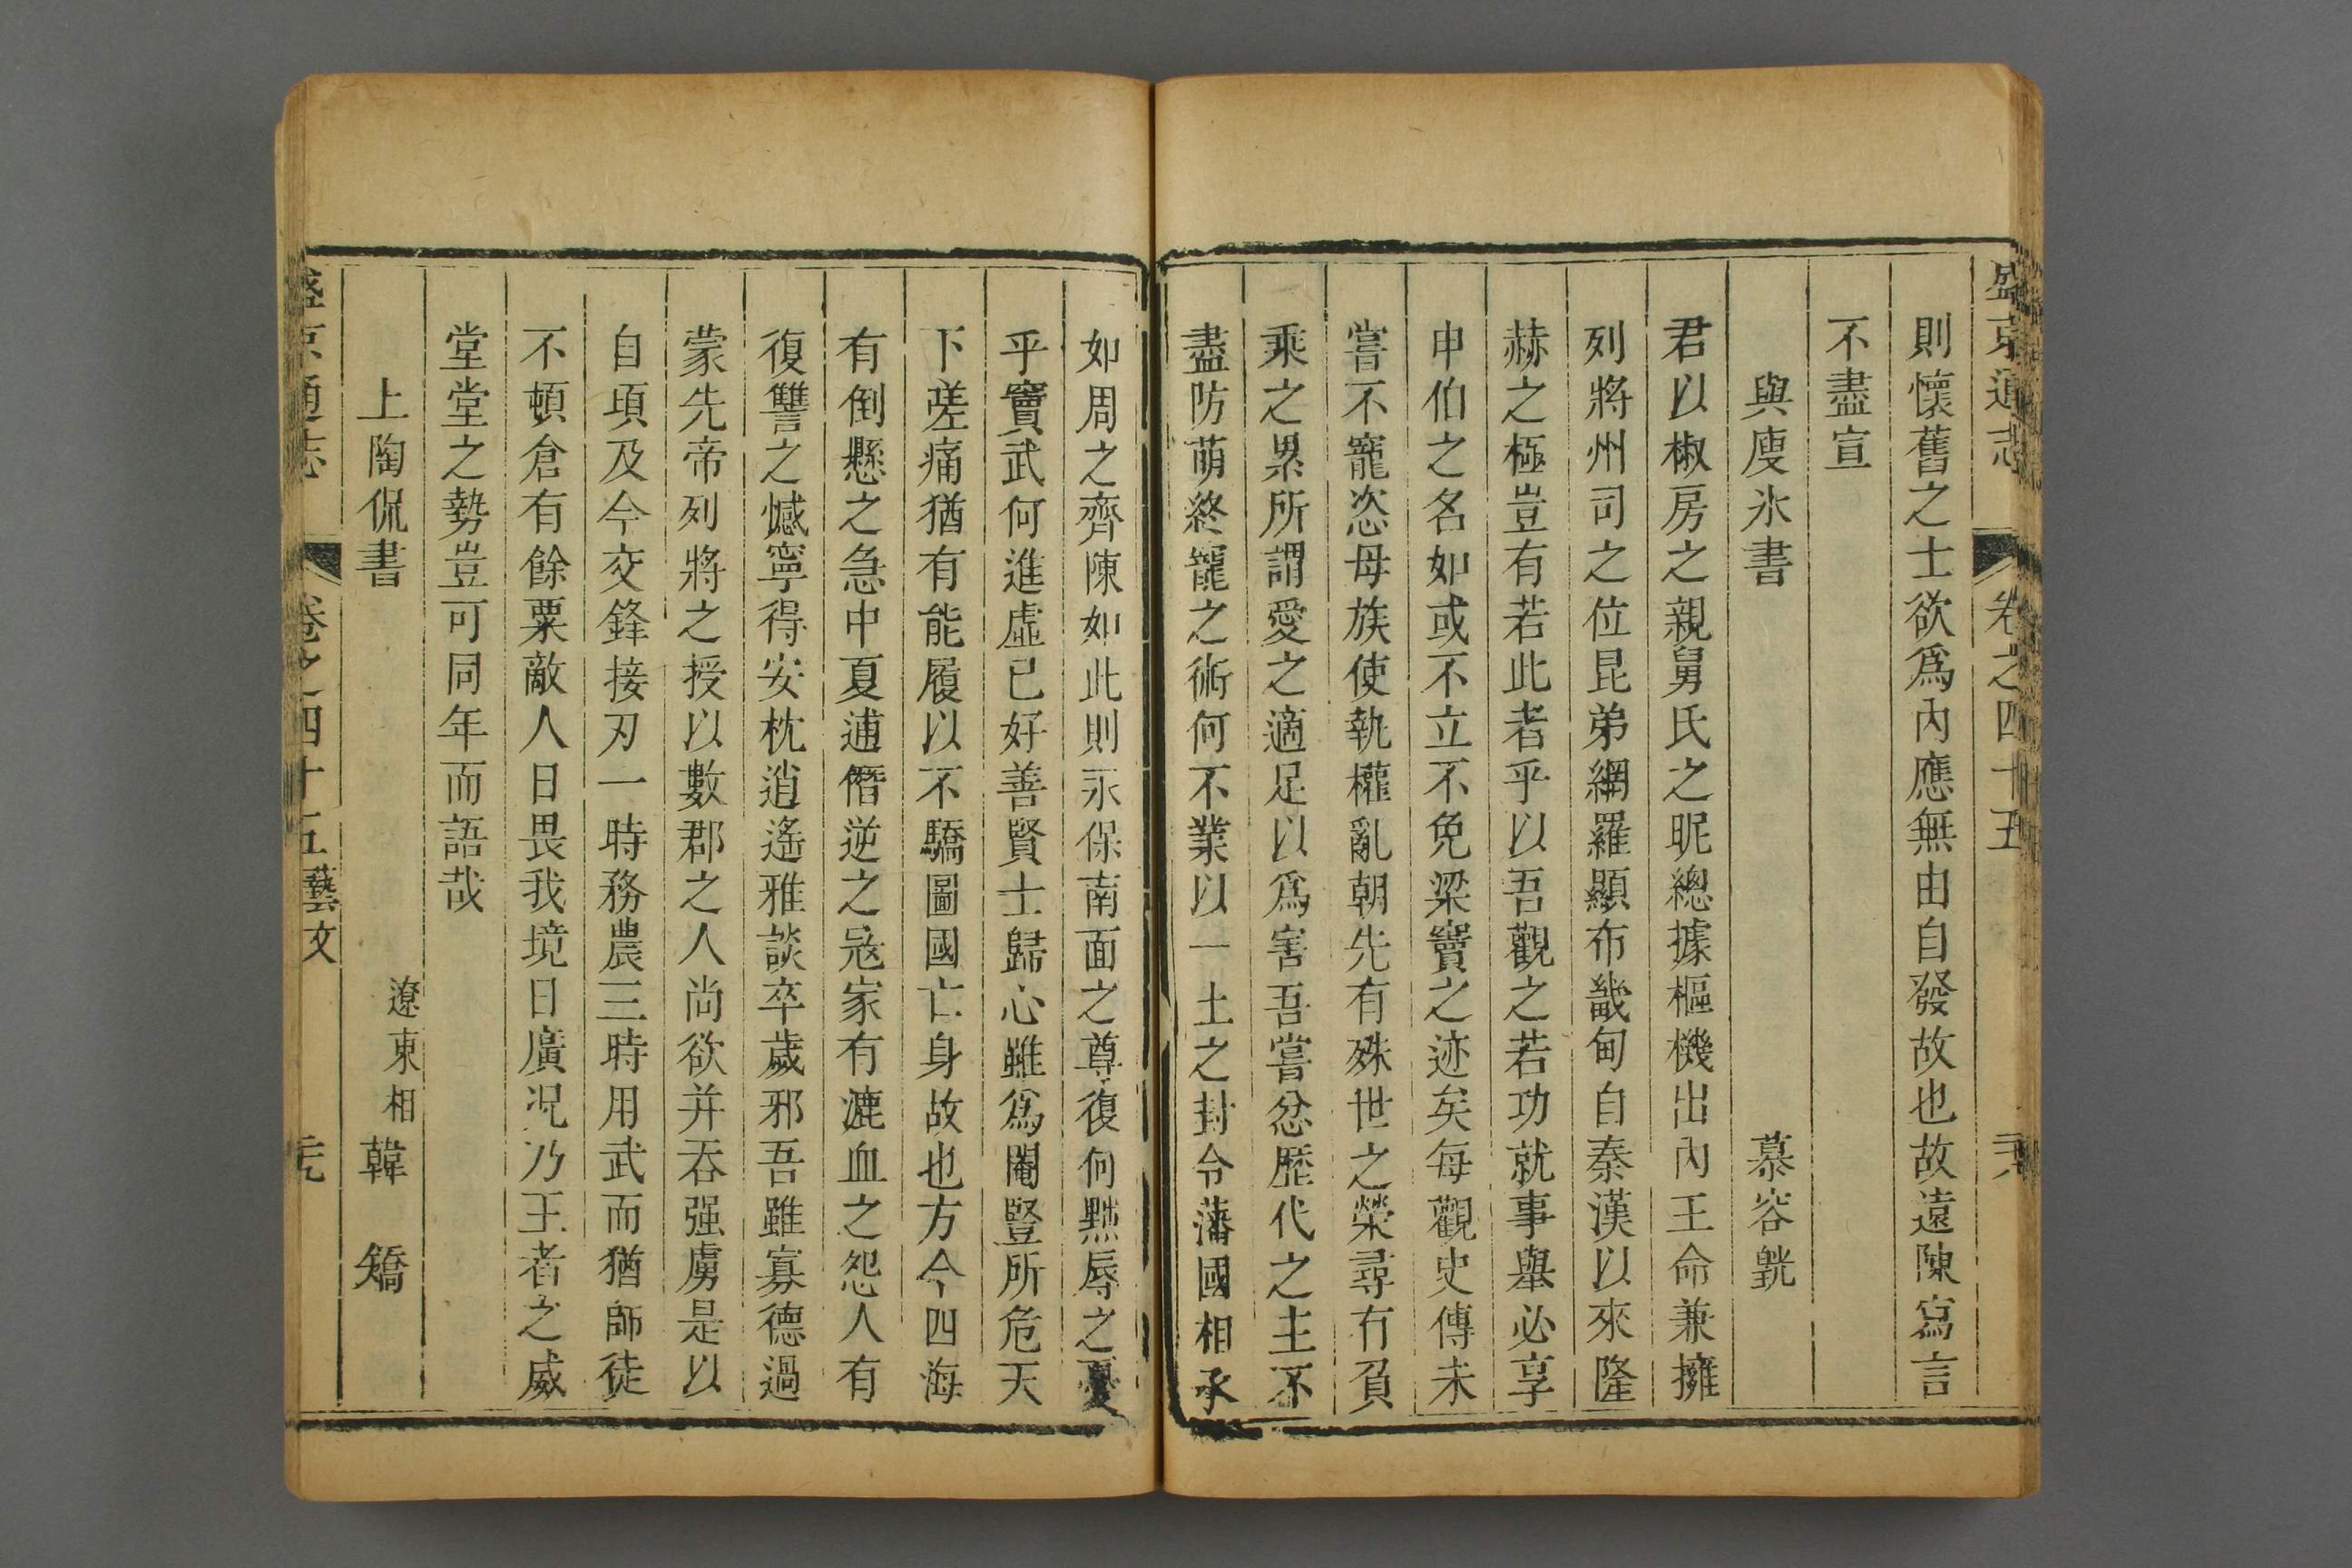 盛京通志 卷之四十五 二六
則懷舊之士欲爲內應無由自發故也故遠陳寫言
不盡宣
與庾氷書 慕容皝
君以椒房之親舅氏之昵總據樞機出內王命兼擁
列將州司之位昆弟網羅顯布畿甸自秦漢以來隆
赫之極豈有若此者乎以吾觀之若功就事舉必享
申伯之名如或不立不免梁竇之迹矣每觀史傳未
嘗不寵恣母族使執權亂朝先有殊世之榮尋有負
乘之累所謂愛之適足以爲害吾嘗忿歷代之主不
盡防萌終寵之術何不業以一土之封令藩國相承
如周之齊陳如此則永保南面之尊復何黜辱之憂
乎竇武何進虛已好善賢士歸心雖爲閹豎所危天
下嗟痛猶有能履以不驕圖國亡身故也方今四海
有倒懸之急中夏逋僭逆之寇家有漉血之怨人有
復讐之憾寧得安枕逍遙雅談卒歲邪吾雖寡德過
蒙先帝列將之授以數郡之人尚欲并吞强虜是以
自頃及今交鋒接刃一時務農三時用武而猶師徒
不頓倉有餘粟敵人日畏我境日廣况乃王者之威
堂堂之勢豈可同年而語哉
上陶侃書 遼東相 韓 矯
盛京通志 卷之四十五 藝文 元